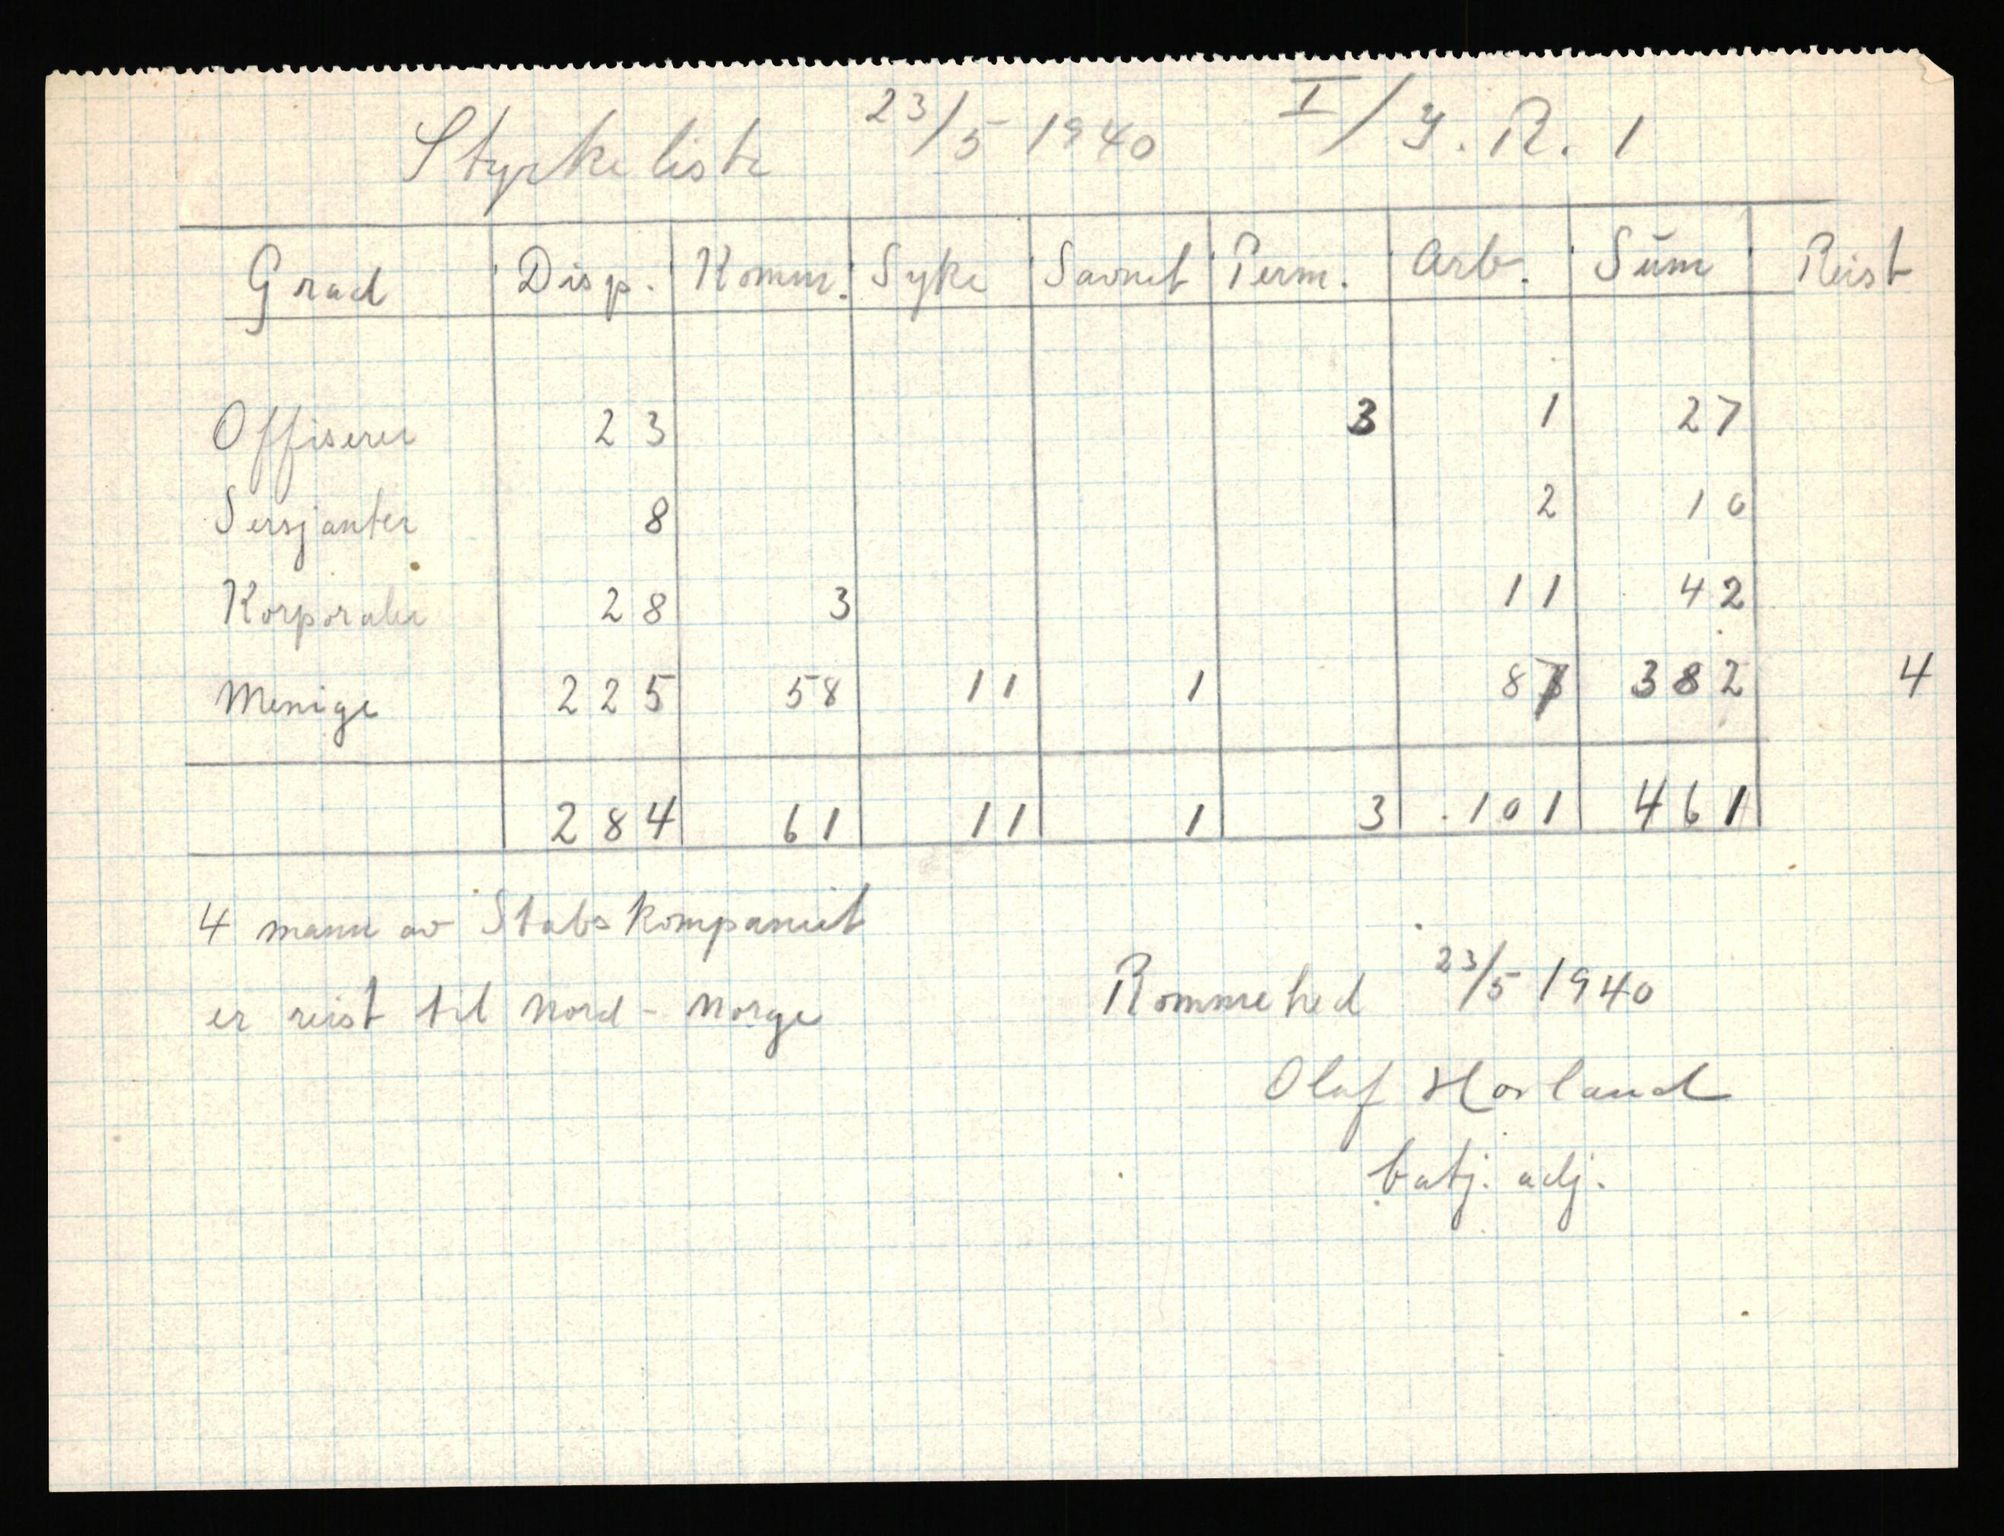 Styrkeliste 23/5 1940 I/I.R. 1
Grad Disp. Komm. Syke Savnet Perm. Arb. Sum Reist
Offiserer 23 3 1 27
Sersjanter 8 2 10
Korporaler 28 3 11 42
Menige 225 58 11 1 87 382 4
284 61 11 1 3 101 461
4 mann av Stabskompaniet
er reist til Nord-Norge
Rommehed 23/5 1940
Olaf Hovland
batj. adj.